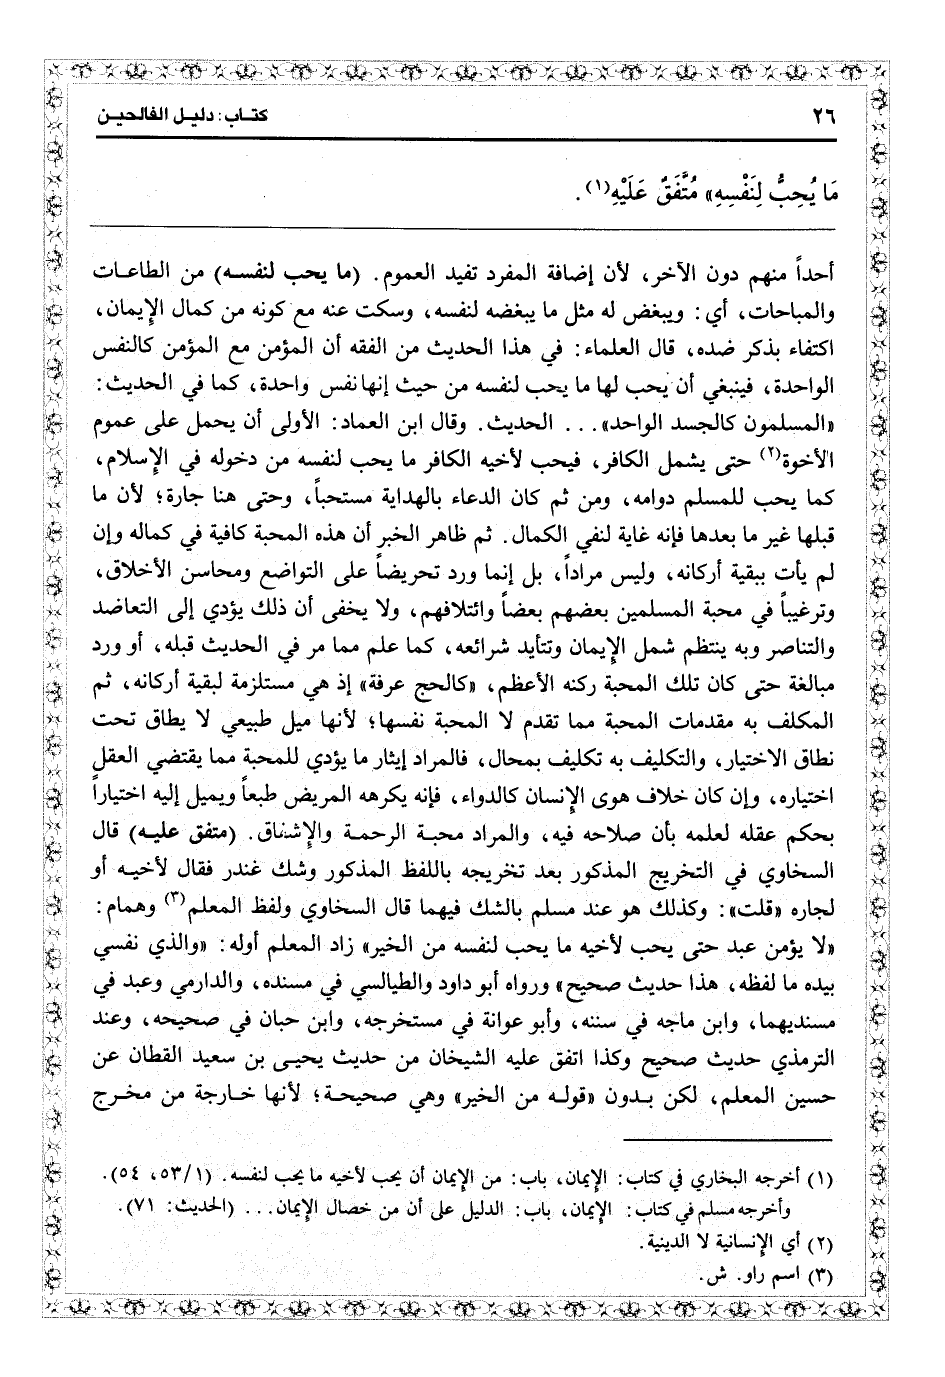 ٢٦
كتـاب : دليـل الفالحيـن
مَا يُحِبُّ لِنَفْسِهِ» مُتَّفَقٌ عَلَيْهِ(١).
أحداً منهم دون الآخر، لأن إضافة المفرد تفيد العموم. (ما يحب لنفسـه) من الطاعـات
والمباحات، أي: ويبغض له مثل ما يبغضه لنفسه، وسكت عنه مع كونه من كمال الإيمان،
اكتفاء بذكر ضده، قال العلماء: في هذا الحديث من الفقه أن المؤمن مع المؤمن كالنفس
الواحدة، فينبغي أن يحب لها ما يحب لنفسه من حيث إنها نفس واحدة، كما في الحديث:
«المسلمون كالجسد الواحد»... الحديث. وقال ابن العماد: الأولى أن يحمل على عموم
الأخوة(٢) حتى يشمل الكافر، فيحب لأخيه الكافر ما يحب لنفسه من دخوله في الإسلام،
كما يحب للمسلم دوامه، ومن ثم كان الدعاء بالهداية مستحباً، وحتى هنا جارة؛ لأن ما
قبلها غير ما بعدها فإنه غاية لنفي الكمال. ثم ظاهر الخبر أن هذه المحبة كافية في كماله وإن
لم يأت ببقية أركانه، وليس مراداً، بل إنما ورد تحريضاً على التواضع ومحاسن الأخلاق،
وترغيباً في محبة المسلمين بعضهم بعضاً وائتلافهم، ولا يخفى أن ذلك يؤدي إلى التعاضد
والتناصر وبه ينتظم شمل الإيمان وتتأيد شرائعه، كما علم مما مر في الحديث قبله، أو ورد
مبالغة حتى كان تلك المحبة ركنه الأعظم، «كالحج عرفة» إذ هي مستلزمة لبقية أركانه، ثم
المكلف به مقدمات المحبة مما تقدم لا المحبة نفسها؛ لأنها ميل طبيعي لا يطاق تحت
نطاق الاختيار، والتكليف به تكليف بمحال، فالمراد إيثار ما يؤدي للمحبة مما يقتضي العقل
اختياره، وإن كان خلاف هوى الإنسان كالدواء، فإنه يكرهه المريض طبعاً ويميل إليه اختياراً
بحكم عقله لعلمه بأن صلاحه فيه، والمراد محبـة الرحمـة والإشـاق. (متفق عليـه) قال
السخاوي في التخريج المذكور بعد تخريجه باللفظ المذكور وشك غندر فقال لأخيـه أو
لجاره «قلت»: وكذلك هو عند مسلم بالشك فيهما قال السخاوي ولفظ المعلم(٣) وهمام:
«لا يؤمن عبد حتى يحب لأخيه ما يحب لنفسه من الخير» زاد المعلم أوله: «والذي نفسي
بيده ما لفظه، هذا حديث صحيح» ورواه أبو داود والطيالسي في مسنده، والدارمي وعبد في
مسنديهما، وابن ماجه في سننه، وأبو عوانة في مستخرجه، وابن حبان في صحيحه، وعند
الترمذي حديث صحيح وكذا اتفق عليه الشيخان من حديث يحيـى بن سعيد القطان عن
حسين المعلم، لكن بـدون «قولـه من الخير» وهي صحيحـة؛ لأنها خـارجة من مخـرج
(١) أخرجه البخاري في كتاب: الإيمان، باب: من الإيمان أن يحب لأخيه ما يحب لنفسه. (٥٣/١، ٥٤).
وأخرجه مسلم في كتاب: الإيمان، باب: الدليل على أن من خصال الإيمان... (الحديث: ٧١).
(٢) أي الإنسانية لا الدينية.
(٣) اسم راو. ش.